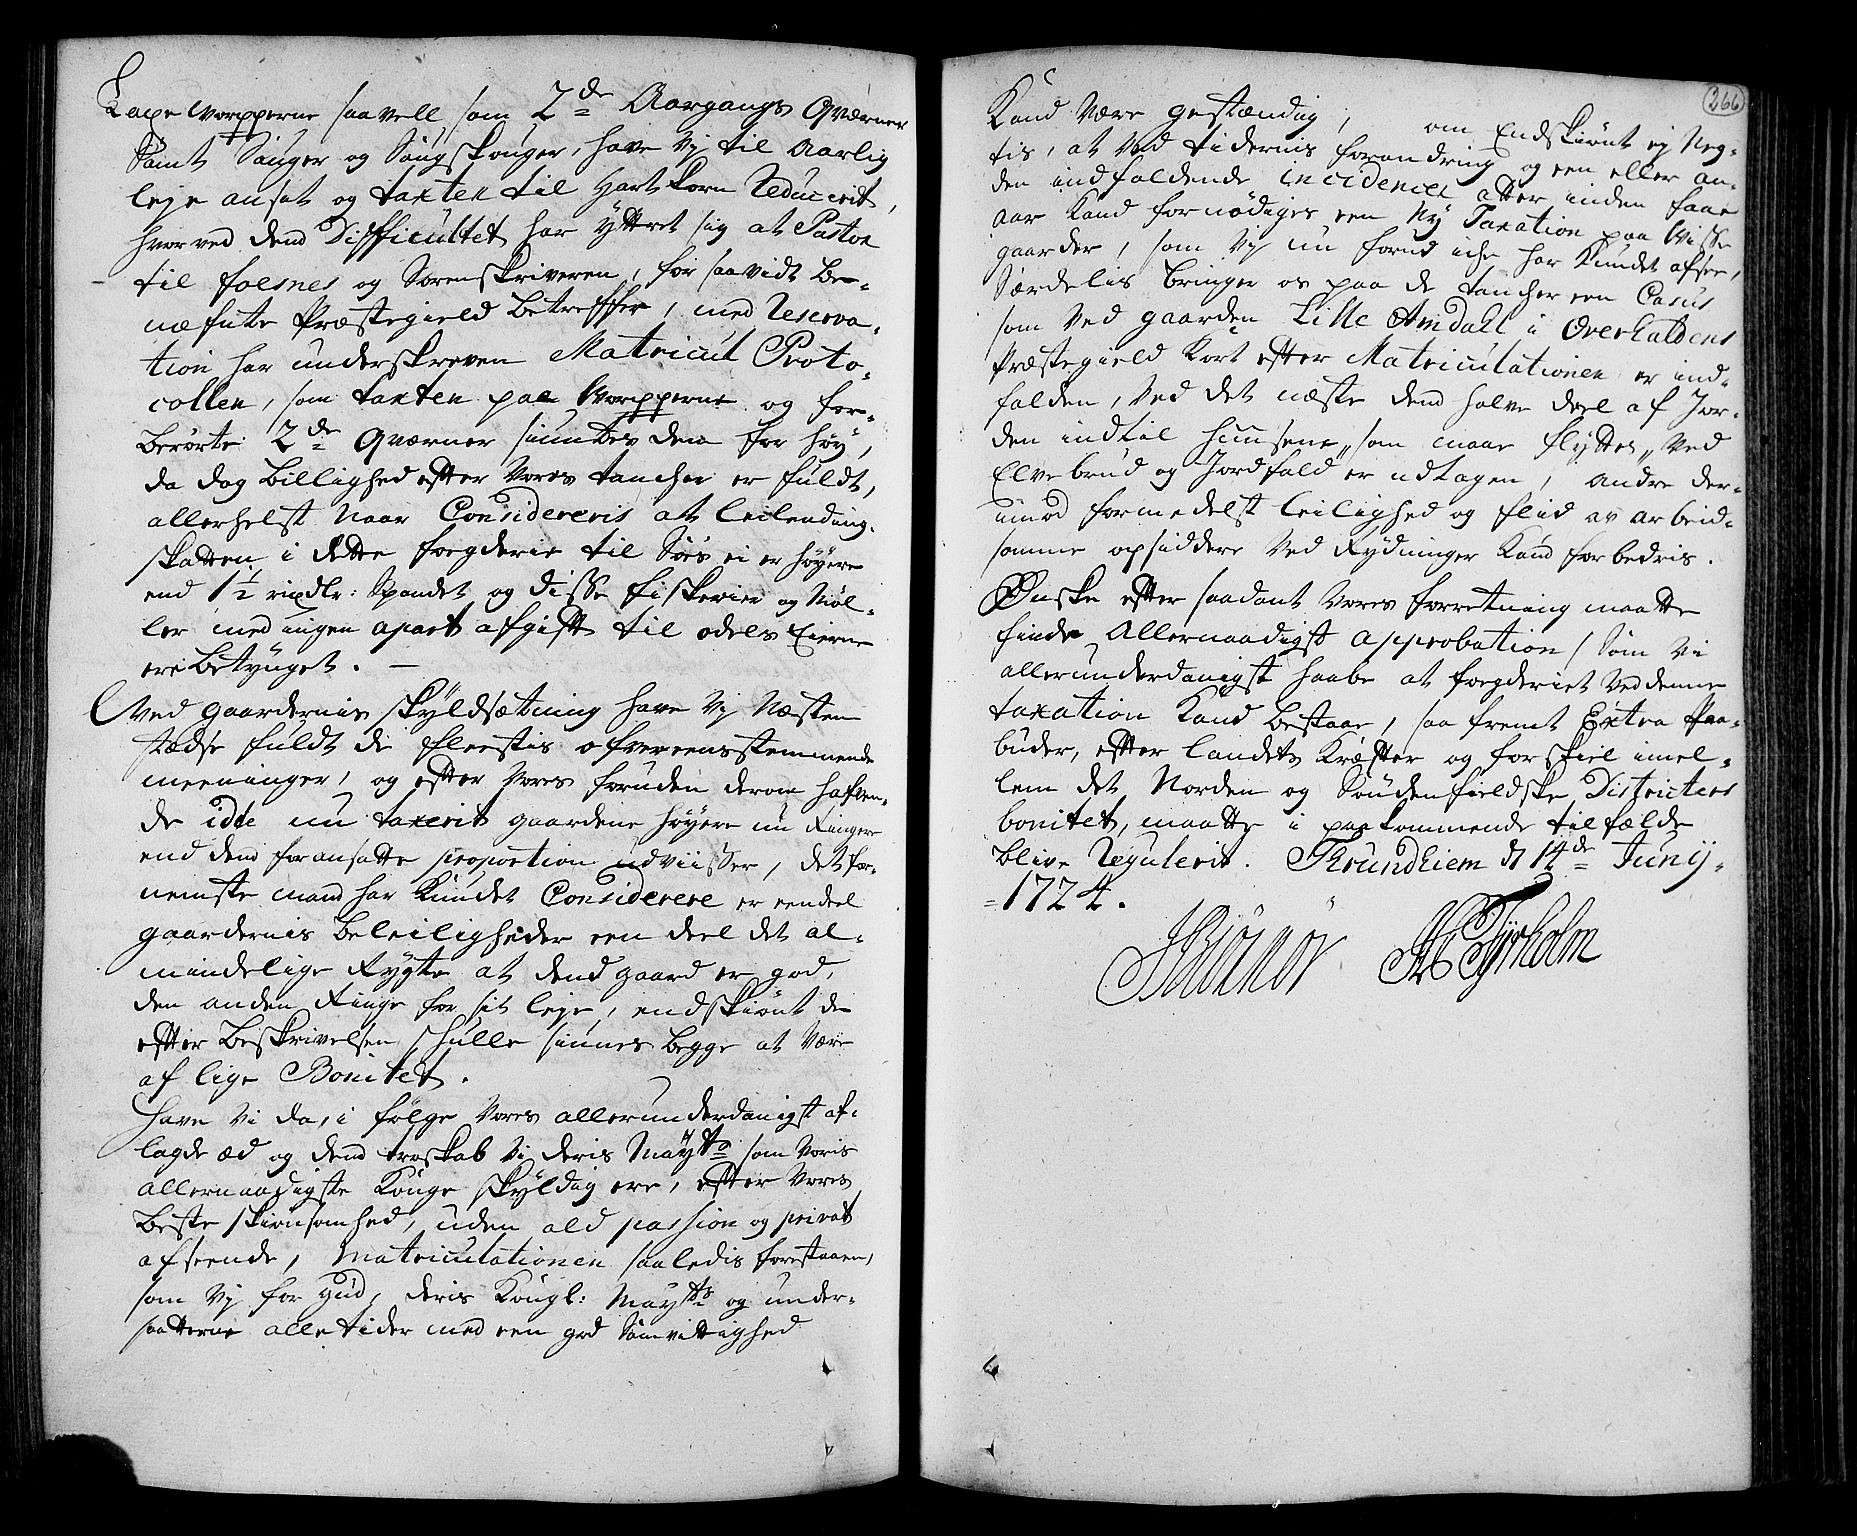 Laxe Worpperne saavell som 2de Aargangs Qværner
Samt Sauger og Saugskouger, have Vj til Aarlig
leje ansat og taxten til Hartkorn Reducerit,
hvorved dend Difficultet har ÿttret sig at Pastor
til foesnes og Sorenskriveren, for saavidt be-
næfnte Præstegield betreffer, med Reserva-
tion har underskreven Matricul Proto-
collen, som taxten paa Worpperne og for-
berørte 2de Qværner siuntes dem for høÿ,
da dog billighed efter Vores tancher er fuldt,
allerhelst Naar Considereris at leilending-
skatten i dette fogderie til Søes ei er høÿere
end 1½ rixdlr: Spandet og disse fiskerier og Møl-
ler med ingen apart afgift til odels Eierne
ere betÿnget. —
Wed gaardernis skÿldsætning have Vj Næsten
stædse fuldt de fleestis ofvereensstemmende
meeninger, og efter Vores foruden derom hafven-
de idée nu taxerit gaardene høÿere nu Ringere
end dend foransatte proportion udviisser, det for-
nemste mand har Kundet Considerere er eendeel
gaardernis beleiligheder een deel det al-
mindelige Rÿgte at dend gaard er god,
den anden Ringe for sit leje, endskiønt de
efter beskrivelsen skulle siunes begge at være
af lige Bonitet.
Have Vi da, i følge Vores allerunderdanigst af-
lagde æd og dend troskab Vi deris Maÿts som Voris
allernaadigste Konge skÿldig ere, efter Vores
beste skiønsomhed, uden ald passion og privat
afseende, Matriculationen saaledis forestaaen,
som Vj for Gud, deris Kongl: Maÿts og under-
saatterne alle tider med een god Samvittighed
266
Kand Være gestændig, om Endskiønt ej Neg-
tis, at Ved tidernis forandring og een eller an-
den indfaldende incidencer atter inden faae
Aar Kand fornødiges een Nÿ Taxation paa Visse
gaarder, som Vj nu forud iche har Kundet afsee,
Særdelis bringer os paa de tancher een Casus
som Ved gaarden Lille Amdall i Overhaldens
Præstegield Kort efter Matriculationen er ind-
falden, Ved det næste dend halve deel af Jor-
den indtil Huusene, som maae flÿttes, Ved
Elvebrud og Jordfald er udtagen, andre der-
imod formedelst leilighed og flid av arbeid-
somme opsiddere Ved Rÿdninger Kand forbedris.
Ønske efter saadant Vores forretning maatte
finde Allernaadigst approbation / Som Vi
allerunderdanigst haabe at fogderiet Ved denne
taxation Kand bestaae, saa fremt Extra Paa-
buder, efter landets Kræfter og forskiel imel-
lem det Norden og Søndenfieldske Districters
bonitet, maatte i paakommende tilfælde
blive Regulerit. Thrundhiem d 14de Junij-
1724.